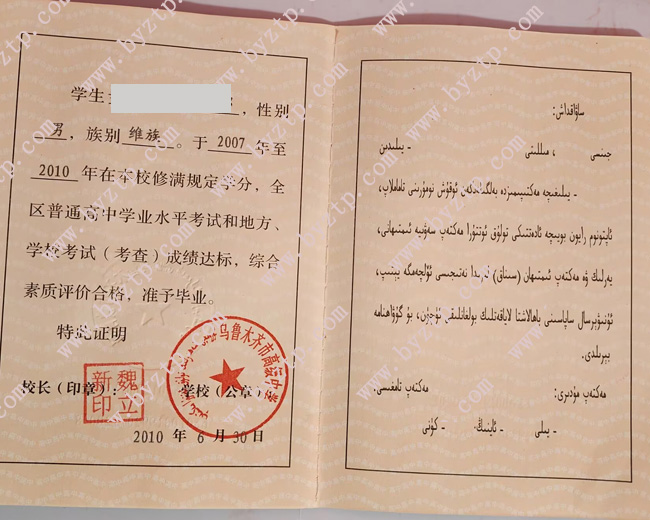 学生 ，性别
男，族别维族。于2007年至
2010年在本校修满规定学分，全
区普通高中学业水平考试和地方、
学校考试（考查）成绩达标，综合
素质评价合格，准予毕业。
特此证明
校长（印章）： 学校（公章）
新魏
印立
2010年6月30日
ساۋاقداش:
جىنسى ، مىللىتى - يىلىدىن
- يىلىغىچە مەكتىپىمىزدە بەلگىلەنگەن ئوقۇش نومۇرىنى تاماملاپ،
ئاپتونوم رايون بويىچە ئادەتتىكى تولۇق ئوتتۇرا مەكتەپ سەۋىيە ئىمتىھانى،
يەرلىك ۋە مەكتەپ ئىمتىھان (سىناق) لىرىدا نەتىجىسى ئۆلچەمگە يېتىپ،
ئۇنىۋېرسال ساپاسىنى باھالاشتا لاياقەتلىك بولغانلىقى ئۈچۈن، بۇ گۇۋاھنامە
بېرىلدى.
مەكتەپ مۇدىرى: مەكتەپ تامغىسى:
- يىلى - ئاينىڭ - كۈنى
www.byztp.com